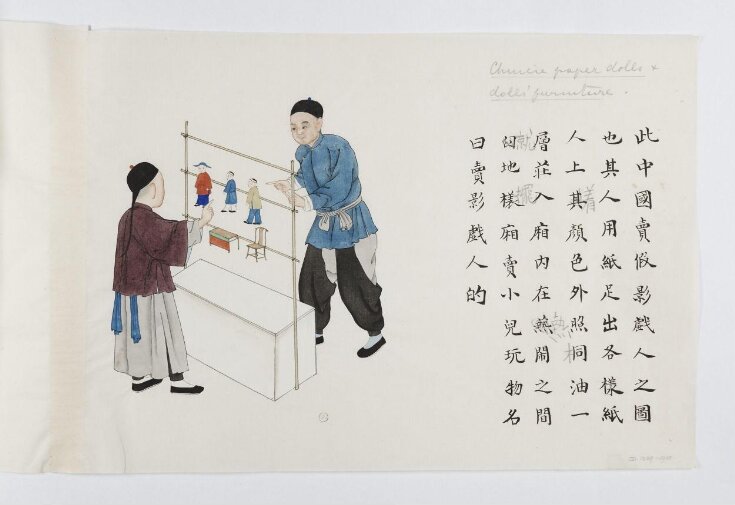 Chinese paper dolls &
dolls' furniture.
此中國賣假影戲人之圖
也其人用紙足出各樣紙
人上其顏色外照桐油一
層莊入廂內在鬧之間
地樣廂賣小兒玩物名
曰賣影戲人的
着
就
擺
熱